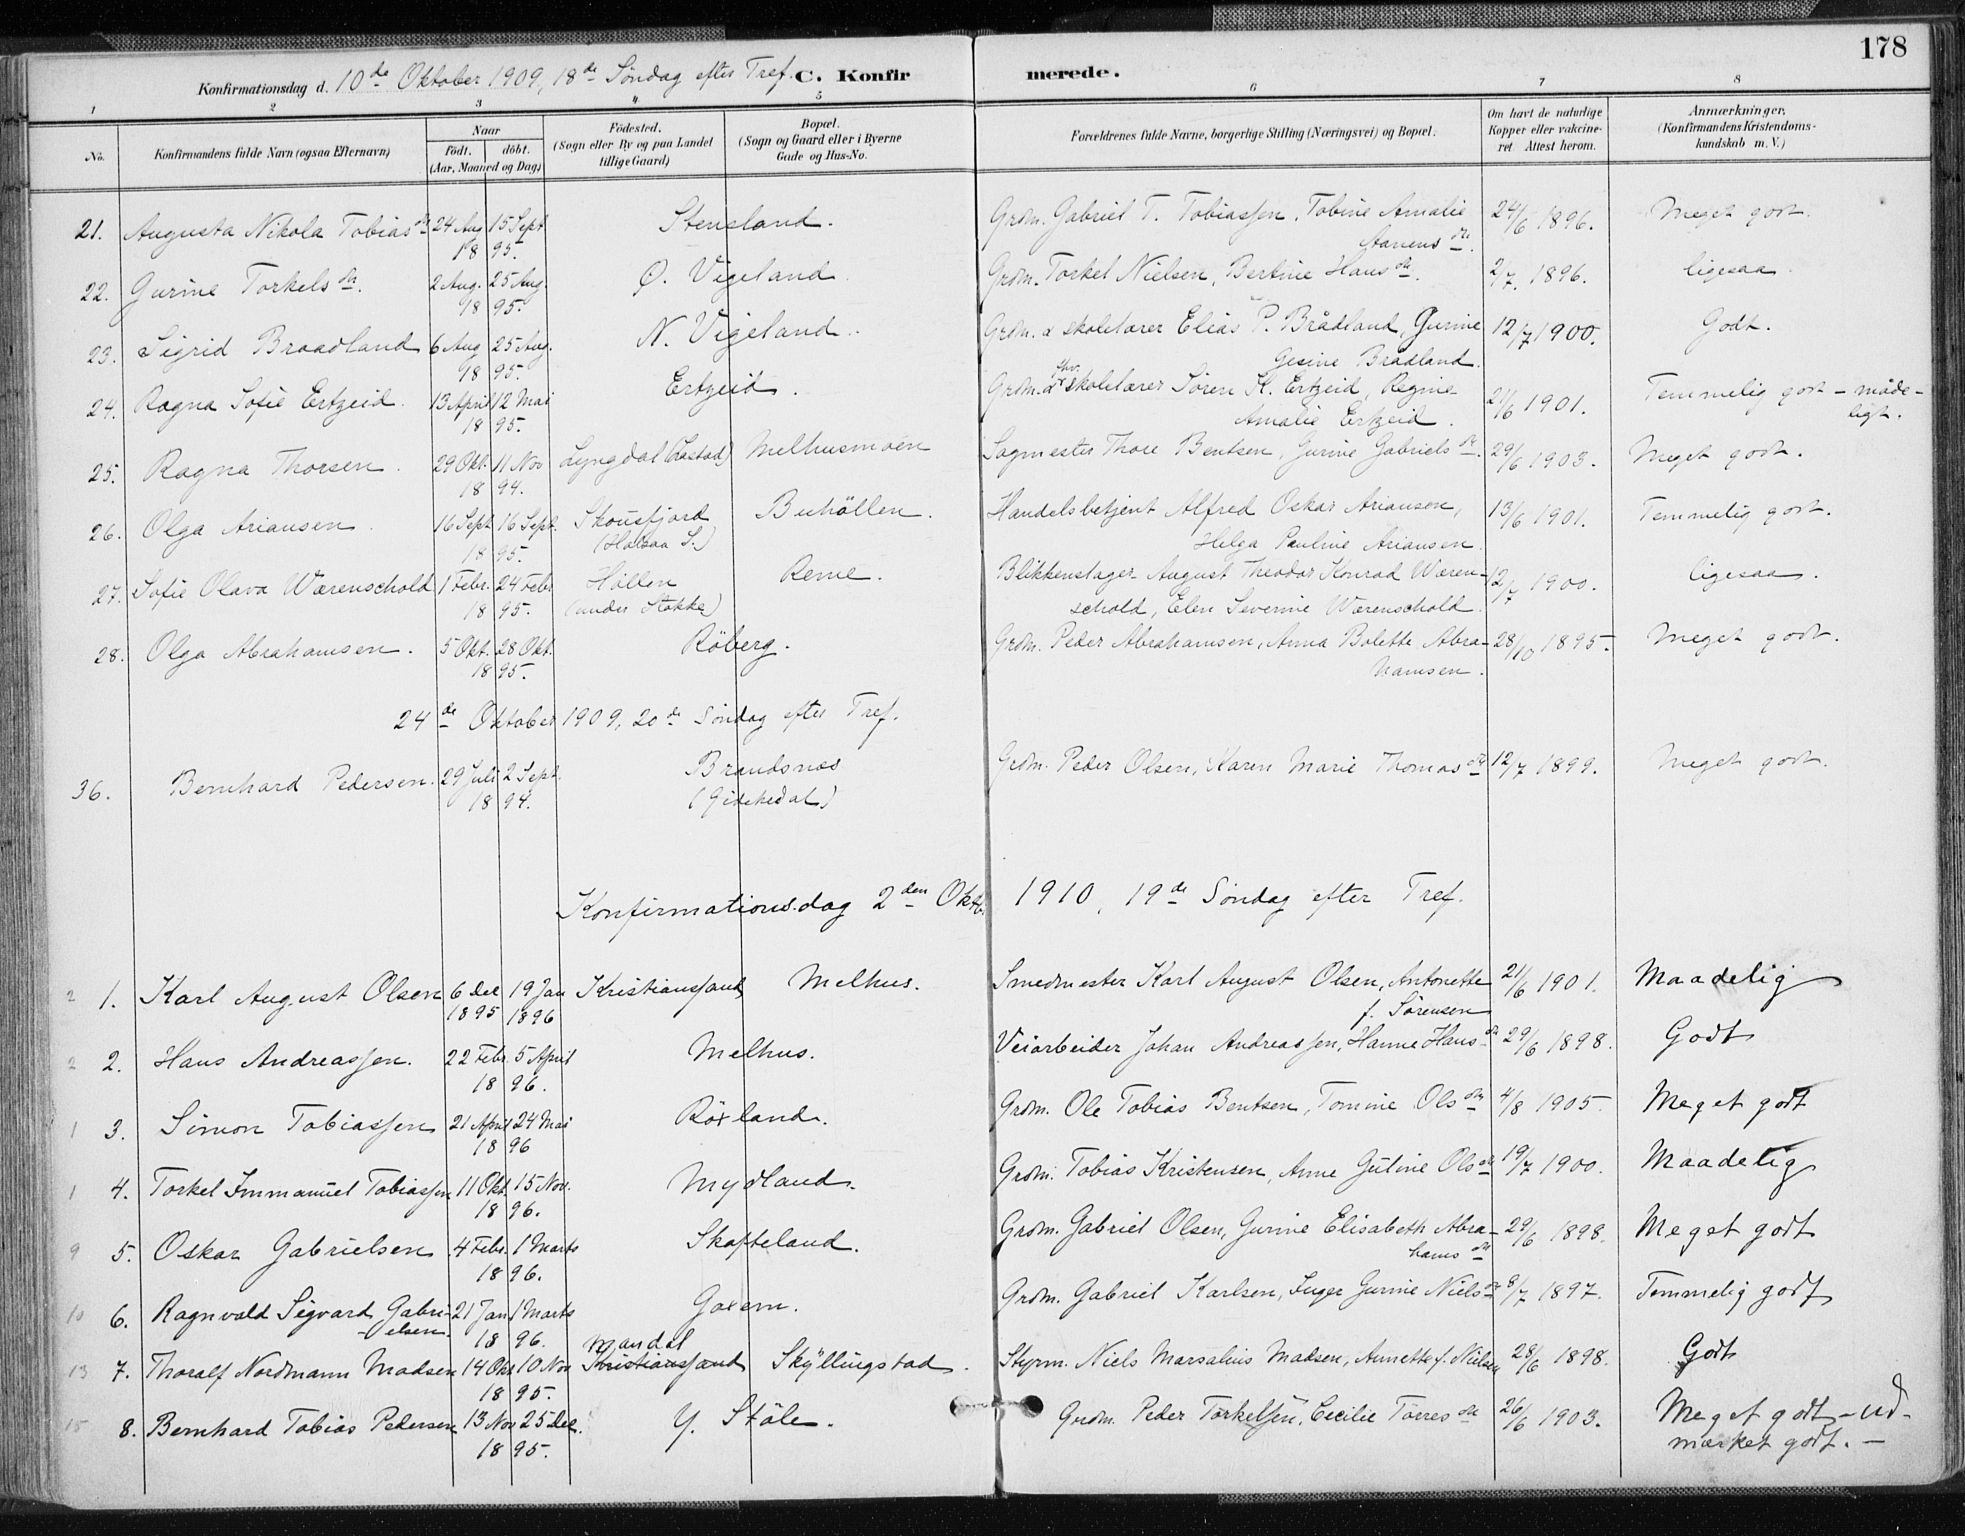 178
Konfirmationsdag d. 10de Oktober 1909, 18de Søndag efter Tref. C. Konfirmerede.
1 2 3 4 5 6 7 8
No. Konfirmandens fulde Navn (ogsaa Efternavn) Naar født, døbt. (Aar, Maaned og Dag) Fødested. (Sogn eller By og paa Landet tillige Gaard) Bopæl. (Sogn og Gaard eller i Byerne Gade og Hus-No. Forældrenes fulde Navne, borgerlige Stilling (Næringsvei) og Bopæl. Om havt de naturlige Kopper eller vakcineret Attest herom. Anmærkninger, (Konfirmandens Kristendomskundskab m. V.)
21. Augusta Nikola Tobiasdr 24 Aug 15 Sept Stensland. Grdm. Gabriel T. Tobiassen, Tobine Amalie 24/6 1896. Meget godt.
18 95. dtr.
22. Gurine Torkelsdtr. 2 Aug. 25 Aug. Ø. Vigeland Grdm. Torkel Nielsen, Bertine Hansdtr. 2/7. 1896. ligesaa.
18 95.
23. Sigrid Braadland 6 Aug 25 Aug. N. Vigeland. Grdm. & skolelærer Elias P. Brådland, Gurine 12/7 1900. Godt.
18 95. Gesine Brådland.
24. Ragna Sofie Ertzeid. 13 April 12 Mai Ertzeid. Grdm. & skolelærer Sören K. Ertzeid, Regine 21/6 1901. Temmelig godt - måde-
18 95. Amalie Ertzeid. ligt.
25. Ragna Thorsen. 29 Okt. 11 Nov Lyngdal Melhusmoen Sagmester Thore Bentsen, Gurine Gabrielsdtr. 29/6 1903. Meget godt.
18 94.
26. Olga Ariansen. 16 Sept 16 Sept. Skousfjord Buhöllen. Handelsbetjent Alfred Oskar Ariansen, 13/6 1901. Temmelig godt.
18 95. (Halsaa S.) Helga Pauline Ariansen.
27. Sofie Olava Wærenschold 1 Febr. 24 Febr Høllen Reme. Blikkenslager August Theodor Konrad Wæren- 12/7 1900. ligesaa.
18 95. (under Stokke) schold, Elen Severine Wærenschold.
28. Olga Abrahamsen. 5 Okt. 28 Okt. Röberg. Grdm. Peder Abrahamsen, Anna Bolette Abra- 28/10 1895. Meget godt.
18 95. hamsen.
24de Oktober 1909, 20de Søndag efter Tref.
36. Bernhard Pedersen. 29 Juli 2 Sept. Brandsnes Grdm. Peder Olsen, Karen Marie Thomasdtr 12/7 1899. Meget godt.
18 94.
Konfirmationsdag 2den Oktb. 1910, 19de Søndag efter Tref.
2 1. Karl August Olsen 6 Dec 19 Jan Kristianssand Melhus. Smedmester Karl August Olsen, Antonette 21/6 1901. Maadelig
1895 1896 f. Sørensen
2 2. Hans Andreassen. 22 Febr. 5 April Melhus. Veiarbeider Johan Andreassen, Hanne Hansdtr 29/6 1898. Godt
18 96.
1 3. Simon Tobiassen 21 April 24 Mai Röxland. Grdm. Ole Tobias Bentsen, Tomine Olsdtr 4/8 1905. Meget godt
18 96
1 4. Torkel Immanuel Tobiassen 11 Okt. 15 Nov. Mydland. Grdm. Tobias Kristensen, Anne Gutine Olsdtr 19/7 1900. Maadelig
18 96.
9 5. Oskar Gabrielsen 4 Febr. 1 Marts Skofteland. Grdm. Gabriel Olsen, Gurine Elisabeth Abra- 29/6 1898. Meget godt
18 96. hamsdtr
10 6. Ragnvald Sigvard Gabri- 21 Jan 1 Marts Goxem. Grdm. Gabriel Karlsen, Inger Gurine Nielsdtr 8/7 1897. Temmelig godt
-elsen. 18 96. Mandal
13 7. Thoralf Nordmann Madsen 14 Okt 10 Nov Kristianssand Skyllingstad. Styrm. Niels Marsalius Madsen, Annette f. Nielsen 28/6 1898. Godt
18 95.
15 8. Bernhard Tobias Pedersen 13 Nov 25 Dec. Y. Støle. Grdm. Peder Torkelsen, Cecilie Torresdtr 26/6 1903. Meget godt - ud-
18 95. mærket godt. -